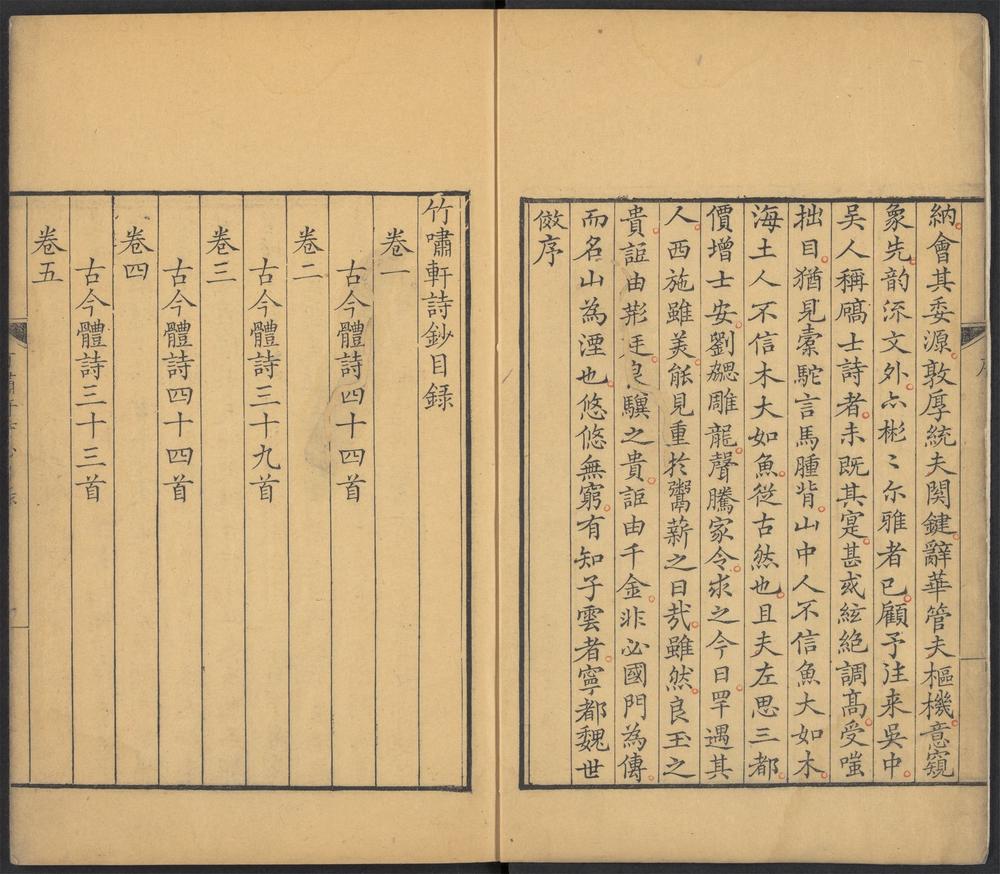 納會其委源敦厚統夫関鍵辭華管夫樞機意窺
象先韵流文外亦彬〻尔雅者已顧予往来吳中
吳人稱碻士詩者未既其寔甚或絃絶調髙受嗤
拙目猶見橐駝言馬腫背山中人不信魚大如木
海土人不信木大如魚従古然也且夫左思三都
價增士安劉勰雕龍聲騰家令求之今日罕遇其
人西施雖美能見重於鬻薪之日㢤雖然良玉之
貴詎由荆廷良驥之貴詎由千金非必國門為傳
而名山為湮也悠悠無窮有知子雲者寧都魏世
傚序
竹嘯軒詩鈔目録
卷一
古今體詩四十四首
卷二
古今體詩三十九首
卷三
古今體詩四十四首
卷四
古今體詩三十三首
卷五